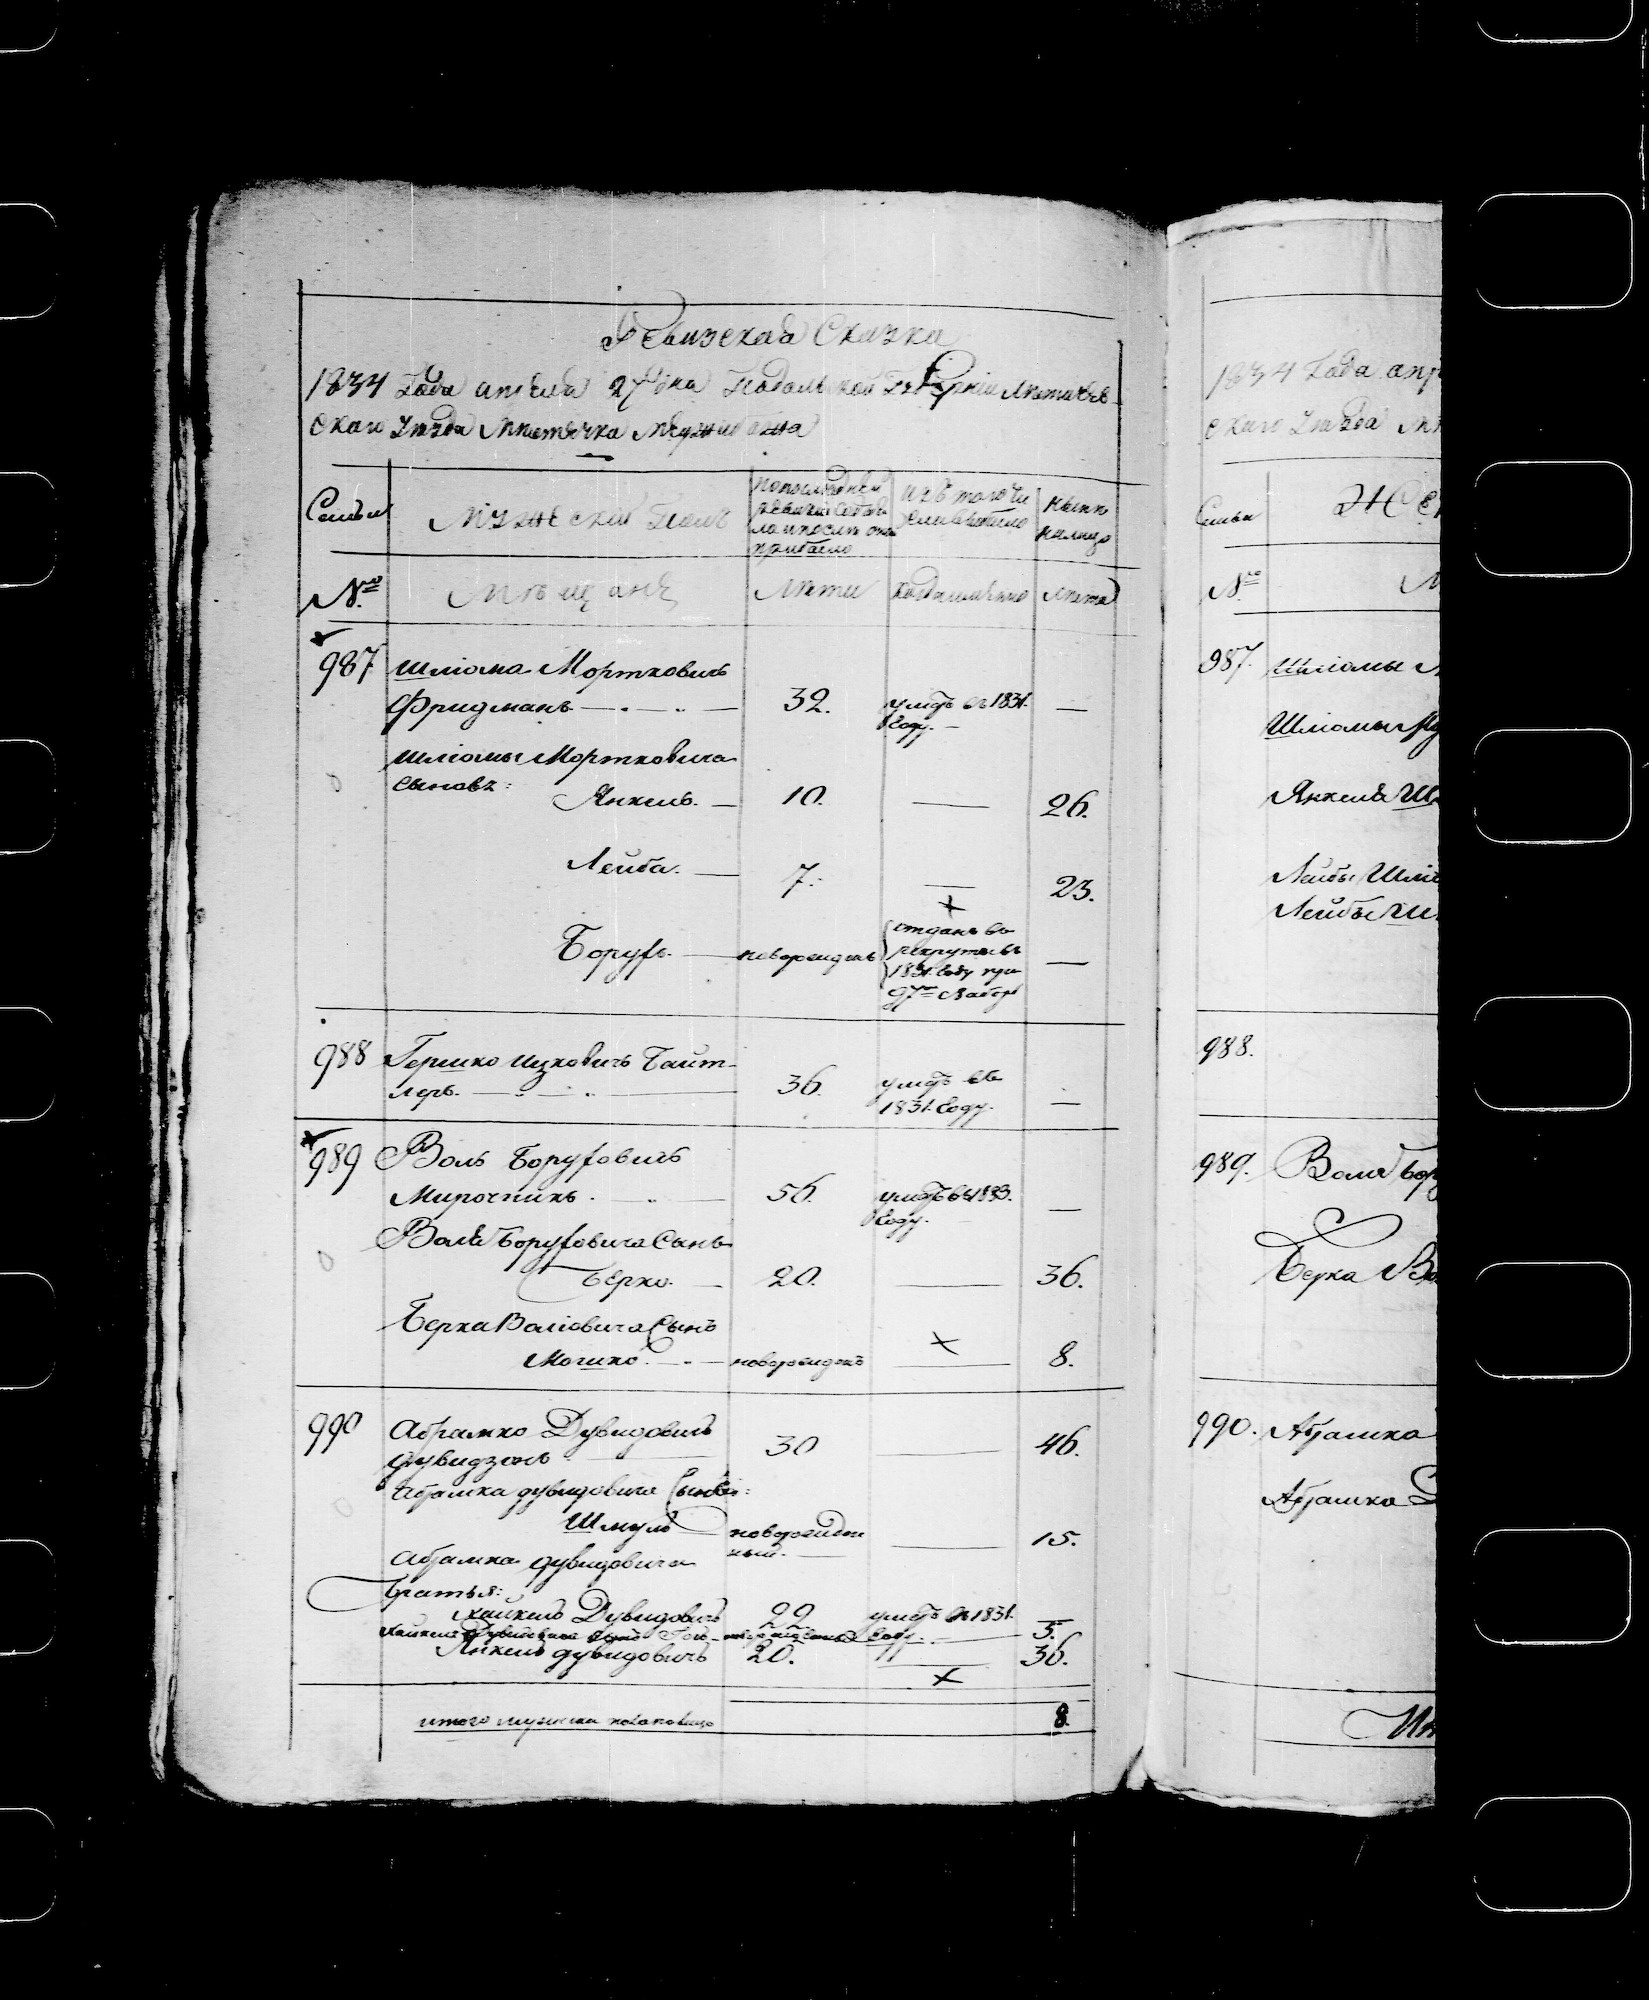 Ревизская Сказка
1834 Года апреля 27 дня Подольской Губернии Летичев-
скаго Уезда Местечка Меджибожа
Семьи
Мужеский Полъ
По последней
ревизии состоя-
ло и после оной
прибыло
Изъ того числа
выбыло
Ныне
на лицо
№
Мещане
Лета
Когда именно
Лета
987
Шліома Мортковичъ
Фридманъ
32.
умеръ въ 1831.
Году.
—
Шліомы Мортковича
сыновя:
Янкель.
10.
—
26.
Лейба.
7.
—
23.
Борухъ.
новорожденъ
отданъ въ
рекруты въ
1831. Году при
97м наборе
—
988
Гершко Ицковичъ Байт-
леръ.
36.
умеръ въ
1831. Году.
—
989
Воль Боруховичъ
Мирочникъ.
56.
умеръ въ 1833.
Году.
—
Воля Боруховича Сынъ
Берко.
20.
—
36.
Берка Воліовича Сынъ
Мошко.
новорожденъ
—
8.
990
Абрамко Дувидовичъ
Дувидзонъ
30
—
46.
Абрамка Дувидовича Сыновя:
Шмуль
новорожден
ный.
—
15.
Абрамка Дувидовича
Братья:
Хайкель Дувидовичъ
22
умеръ въ 1831.
Году.
—
Хайкеля Дувидовича сынъ
новорожденъ
5.
Янкель Дувидовичъ
20.
—
36.
итого мужеска пола налицо
8.
1834 Года апр
скаго Уезда Ме
Семьи
Же
№
М
987.
Шліомы М
Шліомы М
Янкеля Шл
Лейбы Шлі
Лейбы Ш
988.
989.
Воля Бор
Берка Во
990.
Абрамка
Абрамка Д
Ит